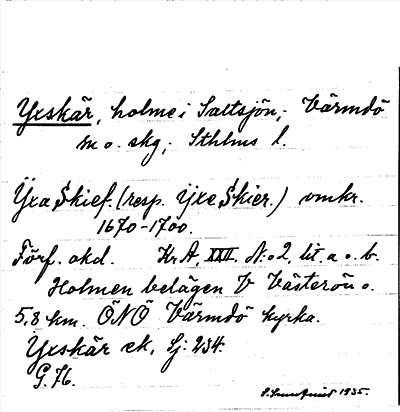 Yxskär, holme i Saltsjön, Värmdö
m o. skg, Sthlms l.
ÿxa Skief. (resp. ÿxe Skier.) omkr.
1670-1700.
Förf. okd. KrA. XXII. N:o 2, lit a o. b.
Holmen belägen V Västerön o.
5,8 km. ÖNÖ Värmdö kyrka.
Yxskär ek, Sj: 234.
G. 76.
1935.